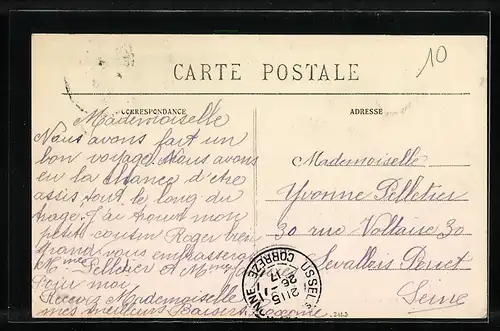 10
CARTE POSTALE
CORRESPONDANCE
ADRESSE
Mademoiselle
Nous avons fait un
bon voyage, Nous avons
eu la chance d'etre
assis tout le long du
trage. J'ai trouvé mon
petit cousin Roger bien
grand vous embrasserez
Mme Pelletier et Mme
Pour moi
Recevez Mademoiselle
mes meilleurs Baisers
Mademoiselle
Yvonne Pelletier
30 rue Voltaire 30
Levallois Perret
Seine
USSEL
CORREZE
21 15